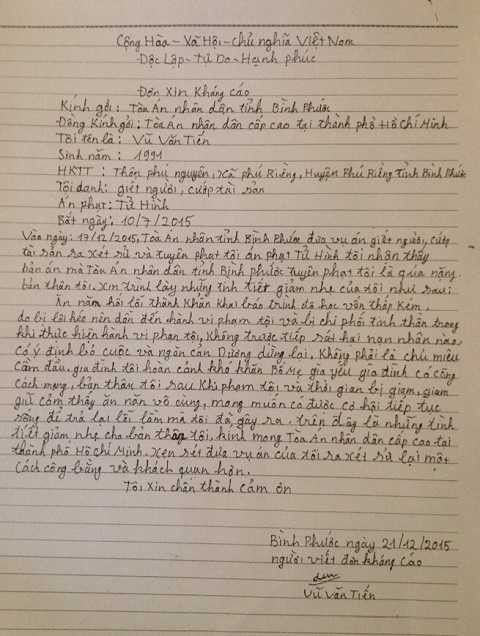 Cộng Hòa - Xã Hội - chủ nghĩa Việt Nam
Độc Lập - Tự Do - Hạnh phúc
Đơn Xin Kháng cáo
Kính gởi : Tòa Án nhân dân tỉnh Bình Phước
Đồng Kính gởi : Tòa Án nhân dân cấp cao tại thành phố Hồ Chí Minh
Tôi tên là : Vũ Văn Tiến
Sinh năm : 1991
HKTT : Thôn phú nguyên, Xã phú Riềng, Huyện Phú Riềng tỉnh Bình Phước
Tội danh : giết người, cướp tài sản
Án phạt : Tử Hình
Bắt ngày : 10/7/2015
Vào ngày : 17/12/2015, Tòa Án nhân tỉnh Bình Phước đưa vụ án giết người, cướp
tài sản ra xét sử và tuyên phạt tôi án phạt Tử Hình tôi nhận thấy
bản án mà Tòa Án nhân dân tỉnh Bình phước tuyên phạt tôi là qúa nặng
bản thân tôi. Xin trình bày những tình tiết giảm nhẹ của tôi như sau :
Ăn năn hối lỗi thành Khẩn Khai báo trình độ học vấn thấp Kém.
do bị lôi kéo nên dẫn đến hành vi phạm tội và bị chi phối tinh thần trong
khi thực hiện hành vi phạm tội, Không trước tiếp sát hại nạn nhân nào.
có ý định bỏ cuộc và ngăn cản Dương dừng lại, Không phải là chủ mưu
cầm đầu, gia đình tôi hoàn cảnh khó khăn Bố Mẹ già yếu gia đình có công
cách mạng, bản thân tôi sau Khi phạm tội và thời gian bị giam, giam
giữ cảm thấy ăn năn vô cùng, mong muốn có được cơ hội tiếp tục
sống để trả lại lỗi lầm mà tôi đã gây ra. trên đây là những tình
tiết giảm nhẹ cho bản thân tôi, kính mong Tòa Án nhân dân cấp cao tại
thành phố Hồ Chí Minh. Xem xét đưa vụ án của tôi ra xét sử lại một
cách công bằng và khách quan hơn.
Tôi Xin chân thành cảm ơn
Bình Phước ngày 21/12/2015
người viết đơn kháng cáo
Vũ Văn Tiến